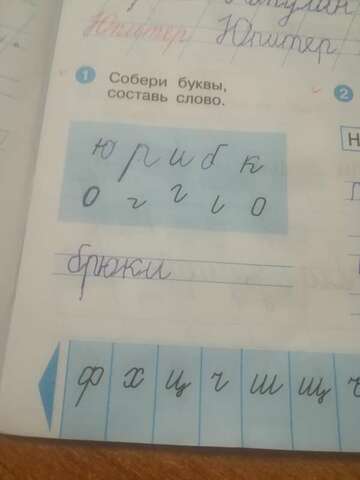 Капулан
Юпитер Юпитер
1 Собери буквы,
составь слово.
2
Н
ю р и б к
брюки
ф х ц ч ш щ